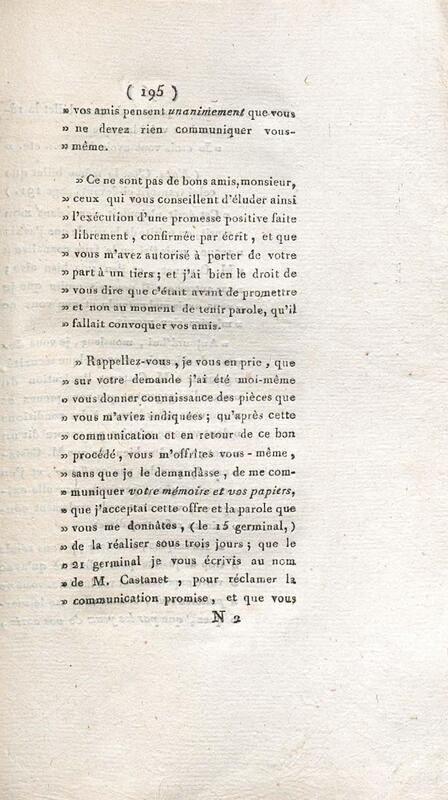 ( 195 )
» vos amis pensent unanimement que vous
» ne devez rien communiquer vous-
» même.
» Ce ne sont pas de bons amis, monsieur,
» ceux qui vous conseillent d'éluder ainsi
» l'exécution d'une promesse positive faite
» librement, confirmée par écrit, et que
» vous m'avez autorisé à porter de votre
» part à un tiers ; et j'ai bien le droit de
» vous dire que c'était avant de promettre
» et non au moment de tenir parole, qu'il
» fallait convoquer vos amis.
» Rappellez-vous, je vous en prie, que
» sur votre demande j'ai été moi-même
» vous donner connaissance des pièces que
» vous m'aviez indiquées ; qu'après cette
» communication et en retour de ce bon
» procédé, vous m'offrites vous-même,
» sans que je le demandâsse, de me com-
» muniquer votre mémoire et vos papiers,
» que j'acceptai cette offre et la parole que
» vous me donnâtes, (le 15 germinal,)
» de la réaliser sous trois jours ; que le
» 21 germinal je vous écrivis au nom
» de M. Castanet, pour réclamer la
» communication promise, et que vous
N 2